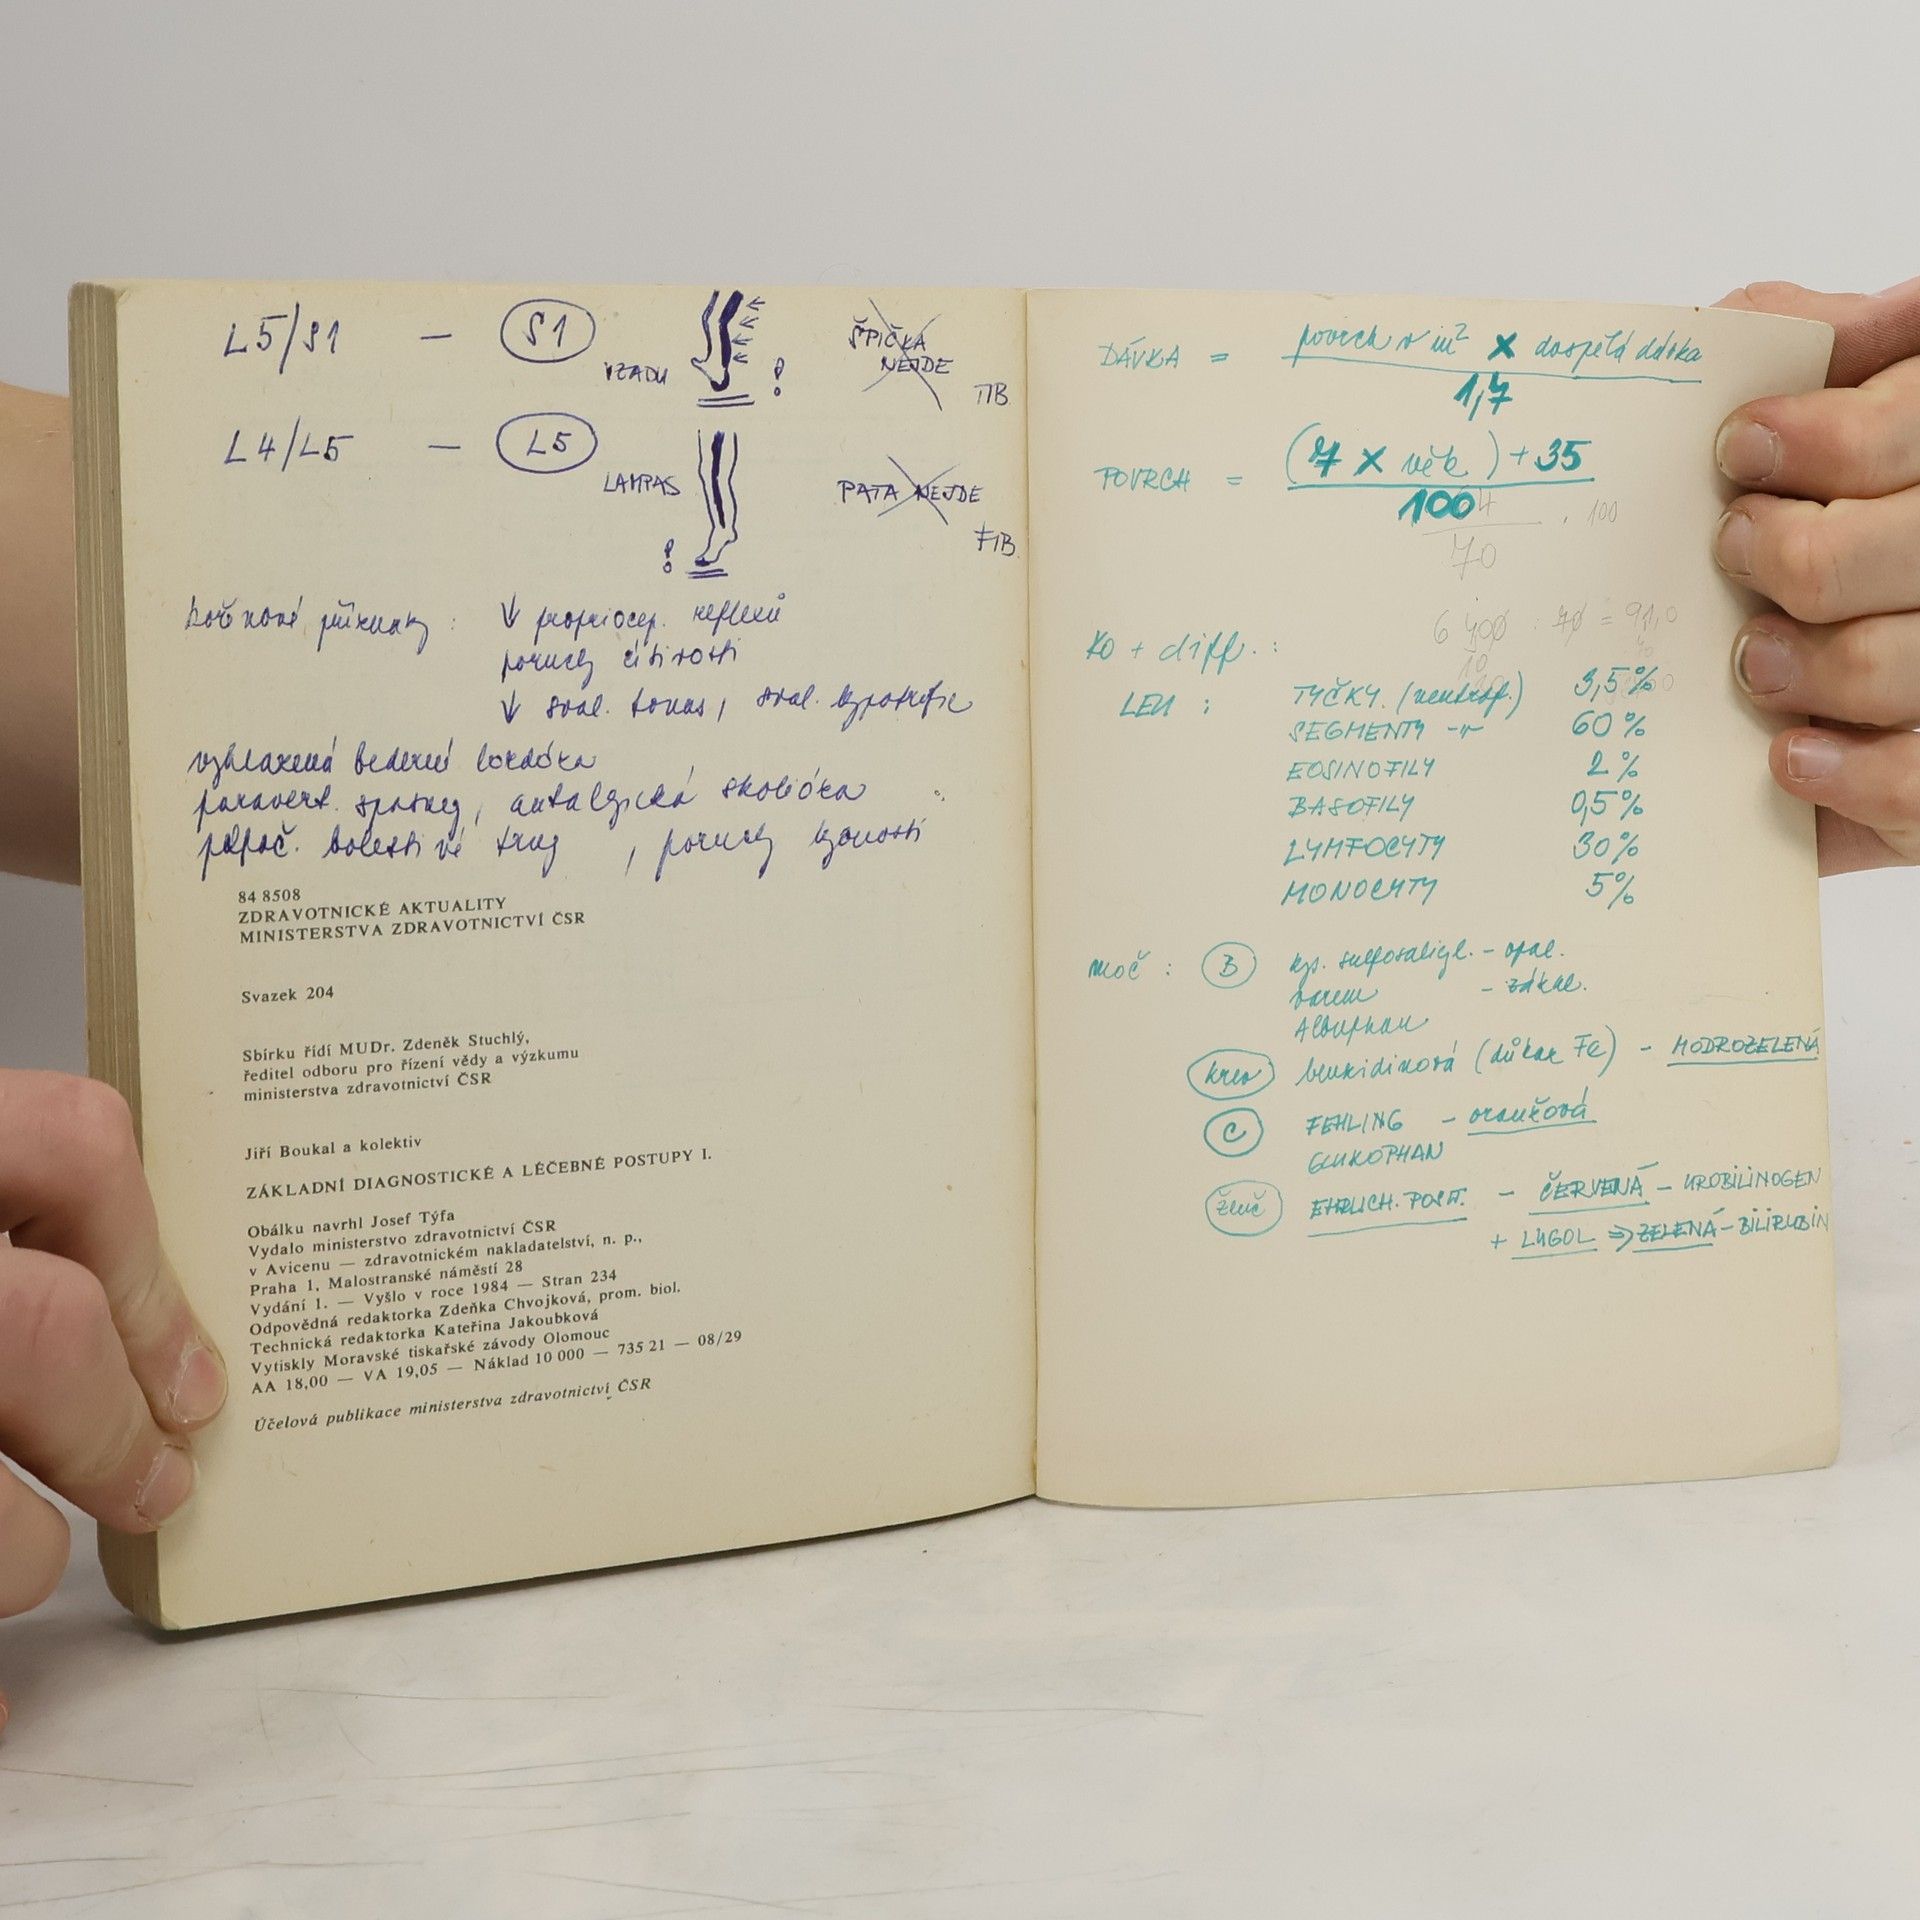 L5/S1 — S1 VZADU ŠPIČKA NEJDE TIB.
L4/L5 — L5 LAMPAS PATA NEJDE FIB.
kořenové příznaky : ↓ propriocep. reflexů
poruchy čitivosti
↓ sval. tonus, sval. hypotrofie
vyhlazená bederní lordóza
paravert. spasmy, antalgická skolióza
bolestivé trny, poruchy hybnosti
84 8508
ZDRAVOTNICKÉ AKTUALITY
MINISTERSTVA ZDRAVOTNICTVÍ ČSR
Svazek 204
Sbírku řídí MUDr. Zdeněk Stuchlý,
ředitel odboru pro řízení vědy a výzkumu
ministerstva zdravotnictví ČSR
Jiří Boukal a kolektiv
ZÁKLADNÍ DIAGNOSTICKÉ A LÉČEBNÉ POSTUPY I.
Obálku navrhl Josef Týfa
Vydalo ministerstvo zdravotnictví ČSR
v Avicenu — zdravotnickém nakladatelství, n. p.,
Praha 1, Malostranské náměstí 28
Vydání 1. — Vyšlo v roce 1984 — Stran 234
Odpovědná redaktorka Zdeňka Chvojková, prom. biol.
Technická redaktorka Kateřina Jakoubková
Vytiskly Moravské tiskařské závody Olomouc
AA 18,00 — VA 19,05 — Náklad 10 000 — 735 21 — 08/29
Účelová publikace ministerstva zdravotnictví ČSR
DÁVKA = povrch v m² x dospělá dávka
1,7
POVRCH = (7 x věk) + 35
100
. 100
70
KO + diff. :
LEU : TYČKY (neutrof.) 3,5%
SEGMENTY -"- 60%
EOSINOFILY 2%
BASOFILY 0,5%
LYMFOCYTY 30%
MONOCYTY 5%
moč : B kys. sulfosalicyl. - opal.
varem - zákal.
Albuphan
krev benzidinová (důkaz Fe) - MODROZELENÁ
C FEHLING - oranžová
GLUKOPHAN
žluč EHRLICH. POSIT. - ČERVENÁ - UROBILINOGEN
+ LUGOL ⇒ ZELENÁ - BILIRUBIN